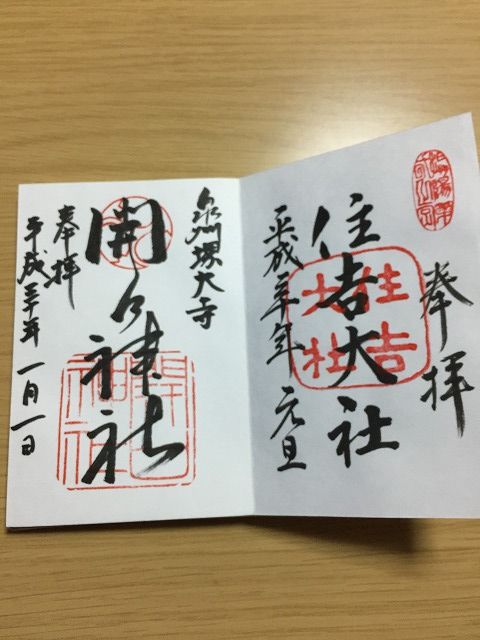 奉拝
住吉大社
住吉大社
平成三十年 元旦
泉州堺大寺
開口神社
開口神社
奉拝
平成三十年 一月一日